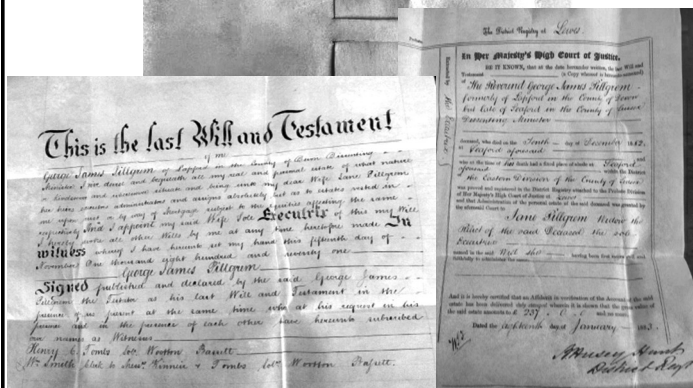 This is the last Will and Testament
of me
George James Pillgrem of Lapford in the County of Devon Dissenting
Minister I do devise and bequeath all my real and personal estate of what nature
or kindsoever and wheresoever situate and being unto my dear Wife Jane Pillgrem
her heirs executors administrators and assigns absolutely but as to estates vested in
me upon trust or by way of Mortgage subject to the equities affecting the same
respectively And I appoint my said Wife Sole Executrix of this my Will
I hereby revoke all other Wills by me at any time heretofore made In
witness whereof I have hereunto set my hand this fifteenth day of
November One thousand eight hundred and seventy one
George James Pillgrem
Signed published and declared by the said George James
Pillgrem the Testator as his last Will and Testament in the
presence of us present at the same time who at his request in his
presence and in the presence of each other have hereunto subscribed
our names as Witnesses
Henry C. Tombs Wootton Bassett
Wm Smith Clerk to Messrs & Tombs Wootton Bassett
The District Registry at Lewes
In Her Majesty's High Court of Justice.
BE IT KNOWN, that at the date hereunder written, the last Will and
Testament
of The Reverend George James Pillgrem
formerly of Lapford in the County of Devon
but late of Seaford in the County of Sussex
Dissenting Minister
deceased, who died on the Tenth day of December 1882,
at Seaford aforesaid
who at the time of his death had a fixed place of abode at Seaford
aforesaid within the District
the Eastern Division of the County of Sussex
was proved and registered in the District Registry attached to the Probate Division
of Her Majesty's High Court of Justice at Lewes
and that Administration of the personal estate of the said deceased was granted by
the aforesaid Court to
Jane Pillgrem Widow the
Relict of the said Deceased the sole
Executrix
named in the said Will she having been first sworn well and
faithfully to administer the same.
And it is hereby certified that an Affidavit in verification of the Account of the said
estate has been delivered wherein it is shewn that the gross value of
the said estate amounts to £ 237
Dated the eighteenth day of January 1883.
District Reg